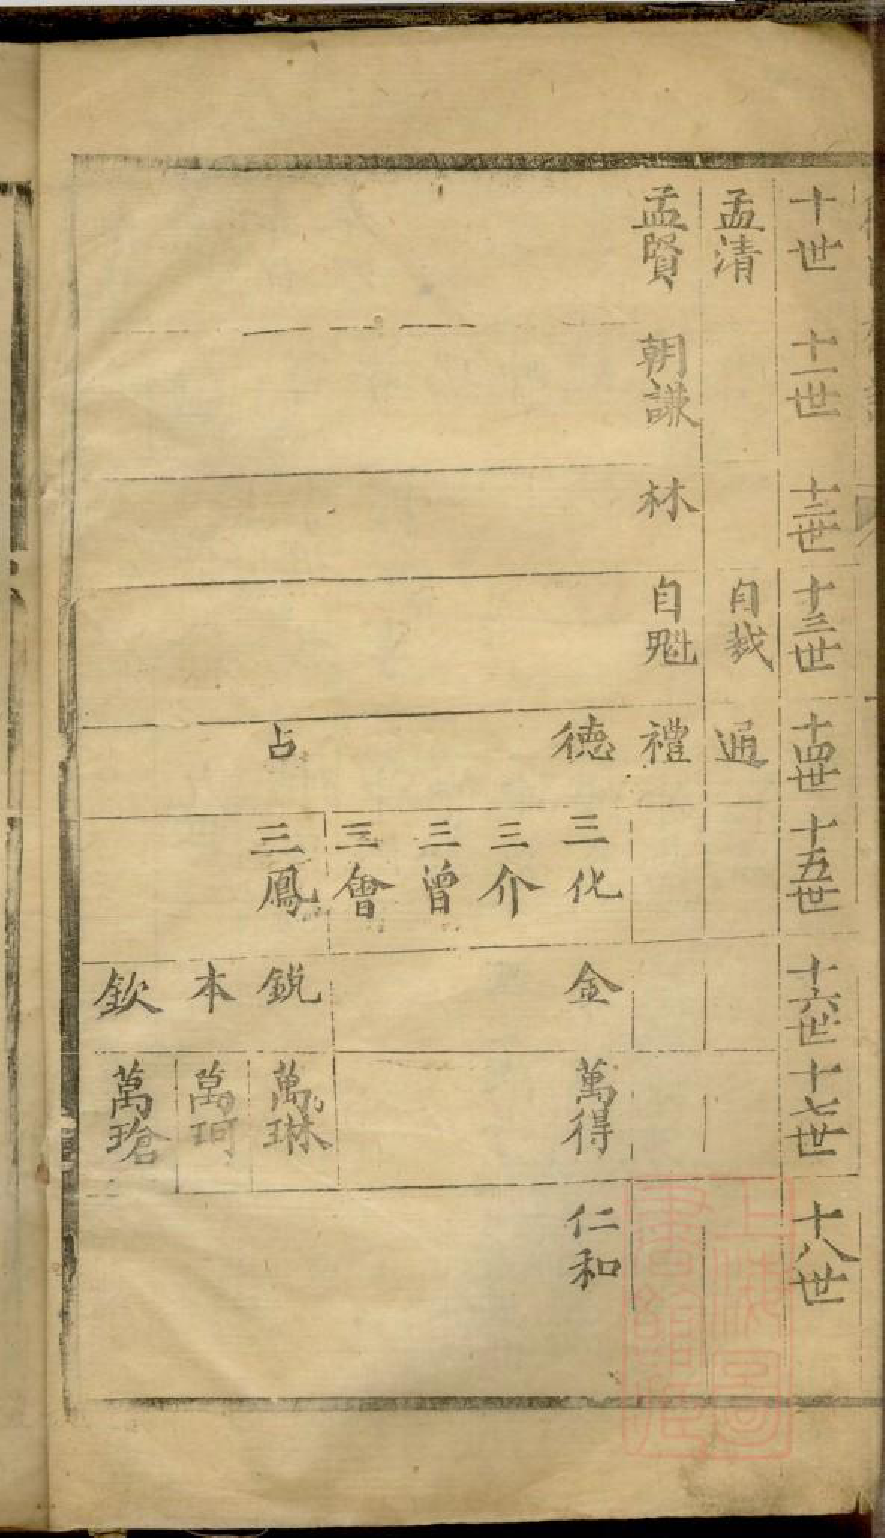 十世 十一世 十二世 十三世 十四世 十五世 十六世 十七世 十八世
孟清 自 通
孟賢 朝謙 林 自魁 禮
徳 三化 金 萬得 仁和
三介
三曾
三會
占 三鳳 鋭 萬琳
本 萬珂
欽 萬瑲
上海圖
書館藏